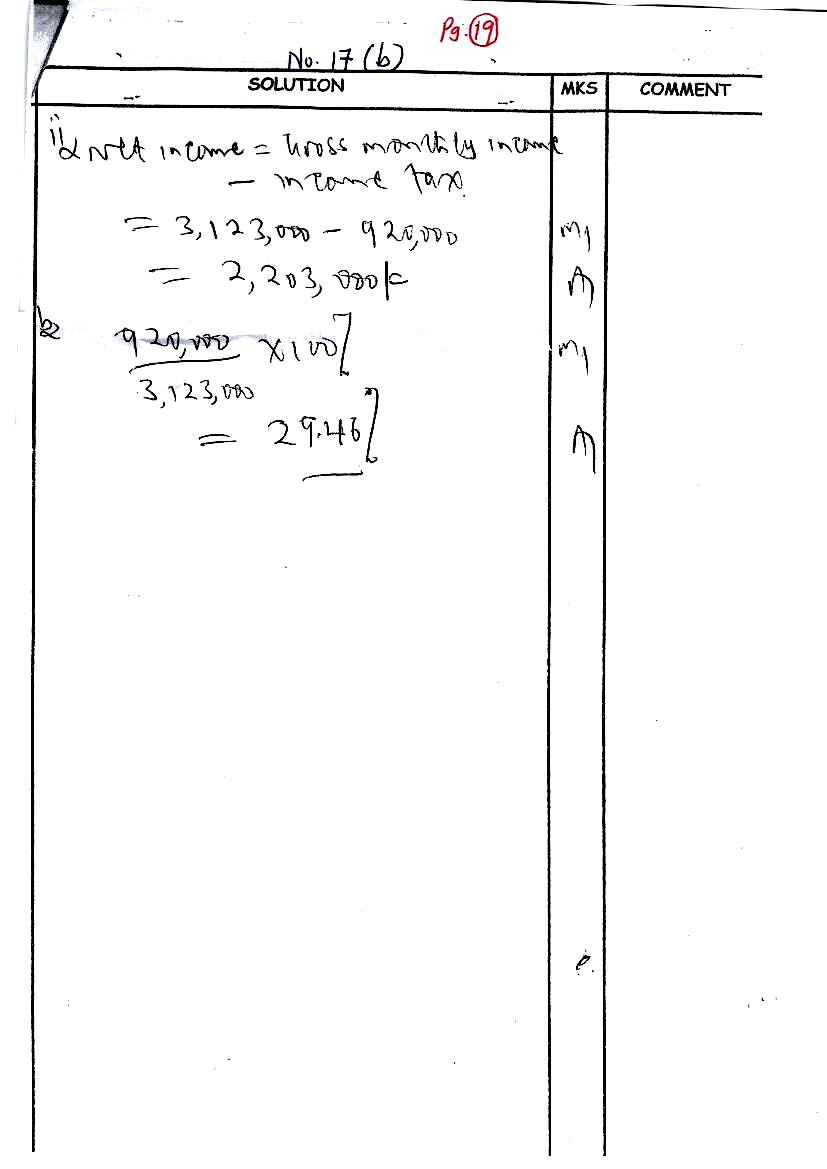 Pg. 19
No. 17 (b)
SOLUTION MKS COMMENT
ii) Net income = Gross monthly income
- income tax
= 3,123,000 - 920,000 M1
= 2,203,000/= A1
920,000 / 3,123,000 × 100% M1
= 29.46% A1